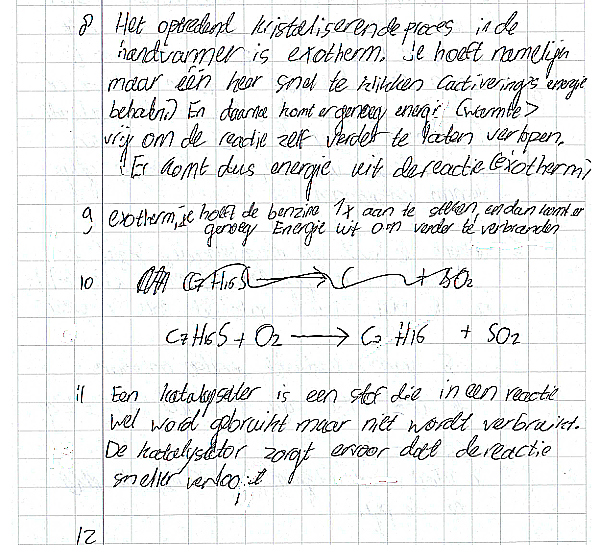 8 Het optredend kristaliserende proces in de
handwarmer is exotherm. Je hoeft namelijk
maar één keer snel te klikken (activerings energie
behalen) En daarna komt er genoeg energie (warmte)
vrij om de reactie zelf verder te laten verlopen.
Er komt dus energie uit de reactie (exotherm)
9 exotherm, je hoeft de benzine 1x aan te steken, en dan komt er
genoeg Energie uit om verder te verbranden
10 C7H16S → C + SO2
C7H16S + O2 → C7 H16 + SO2
11 Een katalysator is een stof die in een reactie
wel word gebruikt maar niet wordt verbruikt.
De katalysator zorgt ervoor dat de reactie
sneller verloopt
12